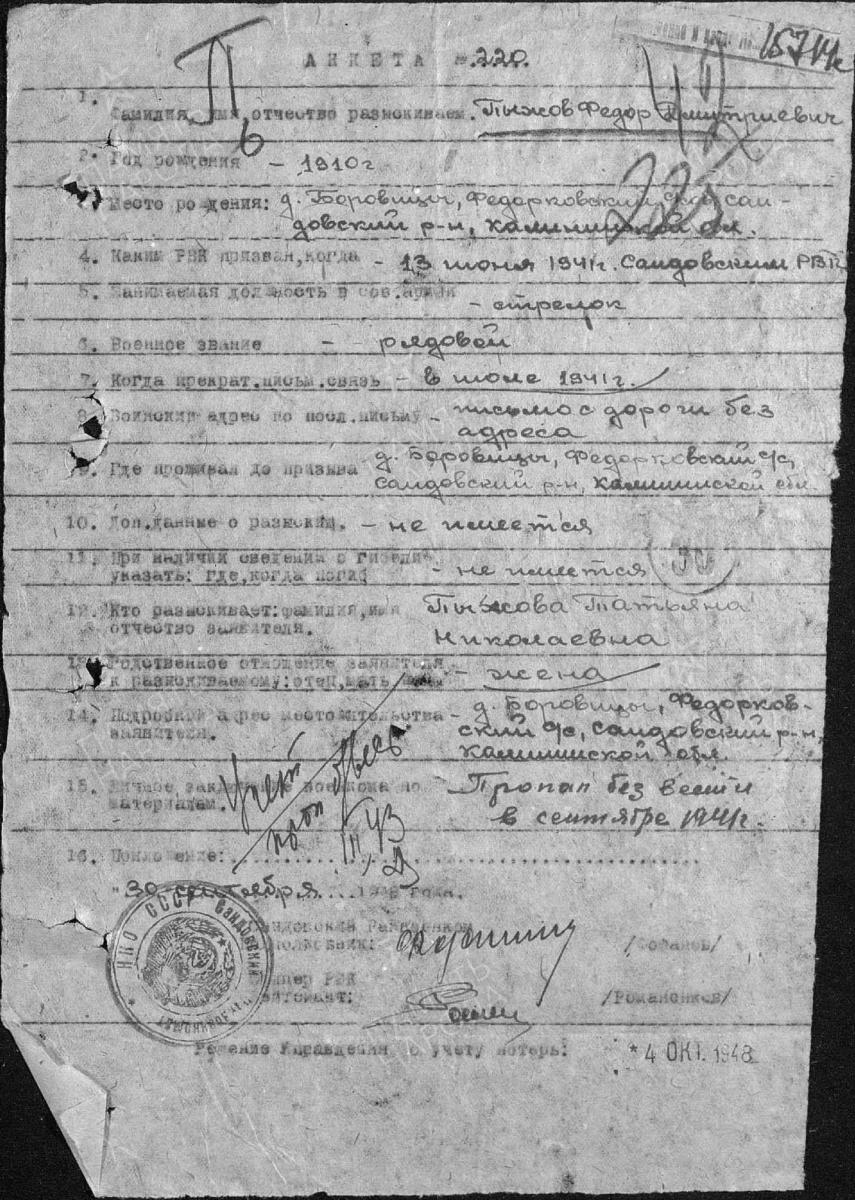 15714с
П
АНКЕТА №.220.
1. Фамилия, имя, отчество разыскиваем. Пыжов Федор Дмитриевич
2. Год рождения - 1910 г
Место рождения: д. Боровицы, Федорковский с/с, сан-
довский р-н, калининской обл.
4. Каким РВК призван, когда - 13 июня 1941г. Сандовским РВК
5. Занимаемая должность в сов.армии - стрелок
6. Военное звание - рядовой
7. Когда прекрат.письм.связь - в июле 1941г.
8. Воинский адрес по посл.письму - письмо с дороги без
адреса
9. Где проживал до призыва д. Боровицы, Федорковский с/с,
сандовский р-н, калининской обл.
10. Доп.данные о разыскив. - не имеется
11. При наличии сведений о гибели
указать: где, когда погиб - не имеется
12. Кто разыскивает: фамилия, имя Пыжова Татьяна
отчество заявителя. Николаевна
13. Родственное отношение заявителя
к разыскиваемому: отец, мать, - жена
14. Подробный адрес местожительства - д. Боровицы, Федорков-
заявителя. ский с/с, сандовский р-н,
калининской обл.
15. Личное заключение военкома по Пропал без вести
материалам. в сентябре 1941г.
Учет
16. Приложение:
30 сентября года.
НКО СССР Сандовский
/Романенков/
Решение Управления по учету потерь: *4 ОКТ. 1948